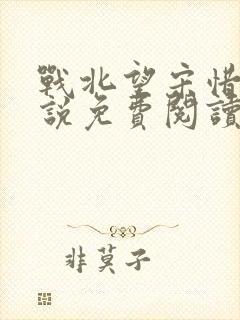 戰北望宋惜
說免費閱讀
非莫子